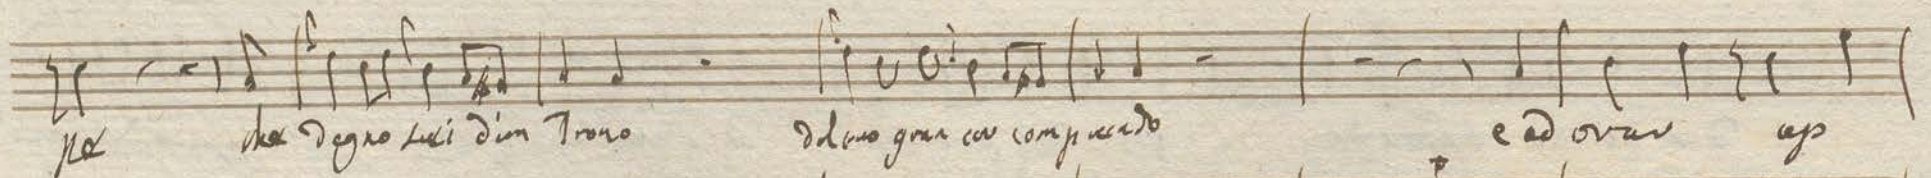 che degno sei d'un Trono del tuo gran cor comprendo e ad orar